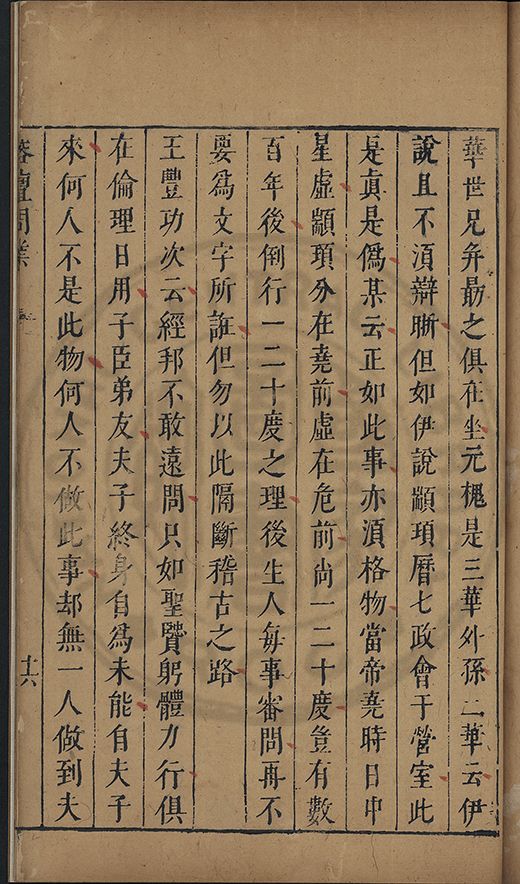 華世兄弁勗之俱在坐元槐是三華外孫二華云伊
說且不湏辯晰但如伊說顓頊曆七政會于營室此
是真是僞某云正如此事亦湏格物當帝堯時日中
星虛顓頊分在堯前虛在危前尚一二十度豈有數
百年後倒行一二十度之理後生人每事審問再不
要爲文字所誰但勿以此隔斷稽古之路
王豐功次云經邦不敢遠問只如聖贒躬體力行俱
在倫理日用子臣弟友夫子終身自爲未能自夫子
來何人不是此物何人不做此事却無一人做到夫
榕壇問業
十六